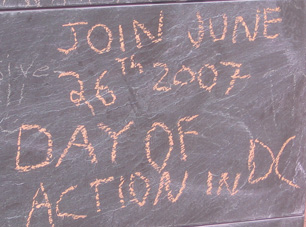 JOIN JUNE
26TH 2007
DAY OF
ACTION IN DC